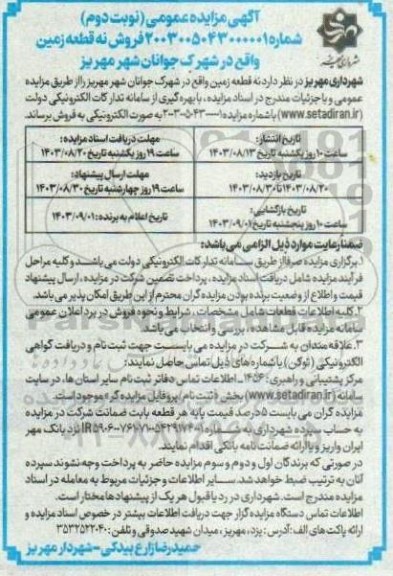 آگهی مزایده عمومی (نوبت دوم)
شماره ۲۰۰۳۰۰۵۰۴۳۰۰۰۰۰۱ فروش نه قطعه زمین
واقع در شهرک جوانان شهر مهریز
شهرداری مهریز
شهرداری مهریز در نظر دارد نه قطعه زمین واقع در شهرک جوانان شهر مهریز را از طریق مزایده
عمومی و با جزئیات مندرج در اسناد مزایده، با بهره گیری از سامانه تدارکات الکترونیکی دولت
(www.setadiran.ir) با شماره مزایده به صورت الکترونیکی به فروش برساند.
تاریخ انتشار:
ساعت ۱۰ روز یکشنبه تاریخ ۱۴۰۳/۰۸/۱۳
مهلت دریافت اسناد مزایده:
ساعت ۱۹ روز یکشنبه تاریخ ۱۴۰۳/۰۸/۲۰
تاریخ بازدید:
۱۴۰۳/۰۸/۲۰ تا ۱۴۰۳/۰۸/۳۰
مهلت ارسال پیشنهاد:
ساعت ۱۹ روز چهارشنبه تاریخ ۱۴۰۳/۰۸/۳۰
تاریخ بازگشایی:
ساعت ۱۰ روز پنجشنبه تاریخ ۱۴۰۳/۰۹/۰۱
تاریخ اعلام به برنده: ۱۴۰۳/۰۹/۰۱
ضمنا رعایت موارد ذیل الزامی می باشد:
۱. برگزاری مزایده صرفا از طریق سامانه تدارکات الکترونیکی دولت می باشد و کلیه مراحل
فرآیند مزایده شامل دریافت اسناد مزایده، پرداخت تضمین شرکت در مزایده، ارسال پیشنهاد
قیمت و اطلاع از وضعیت برنده بودن مزایده گران محترم از این طریق امکان پذیر می باشد.
۲. کلیه اطلاعات قطعات شامل مشخصات، شرایط و نحوه فروش در برد اعلان عمومی
سامانه مزایده قابل مشاهده، بررسی و انتخاب می باشد.
۳. علاقه مندان به شرکت در مزایده می بایست جهت ثبت نام و دریافت گواهی
الکترونیکی (توکن) با شماره های ذیل تماس حاصل نمایند:
مرکز پشتیبانی و راهبری: ۱۴۵۶ـ اطلاعات تماس دفاتر ثبت نام سایر استان ها، در سایت
سامانه (www.setadiran.ir) بخش «ثبت نام / پروفایل مزایده گر» موجود است.
مزایده گران می بایست ۵ درصد قیمت پایه هر قطعه بابت ضمانت شرکت در مزایده
به حساب سپرده شهرداری به شماره نزد بانک مهر
ایران واریز و یا ارائه ضمانت نامه بانکی اقدام نمایند.
در صورتی که برندگان اول و دوم و سوم مزایده حاضر به پرداخت وجه نشوند سپرده
آنان به ترتیب ضبط خواهد شد. سایر اطلاعات و جزئیات مربوط به معامله در اسناد
مزایده مندرج است. شهرداری در رد یا قبول هر یک از پیشنهادها مختار است.
اطلاعات تماس دستگاه مزایده گزار جهت دریافت اطلاعات بیشتر در خصوص اسناد مزایده و
ارائه پاکت های الف: آدرس: یزد، مهریز، میدان شهید صدوقی و تلفن: ۳۵۳۲۵۲۲۰۴۰
حمیدرضا زارع بیدکی - شهردار مهریز